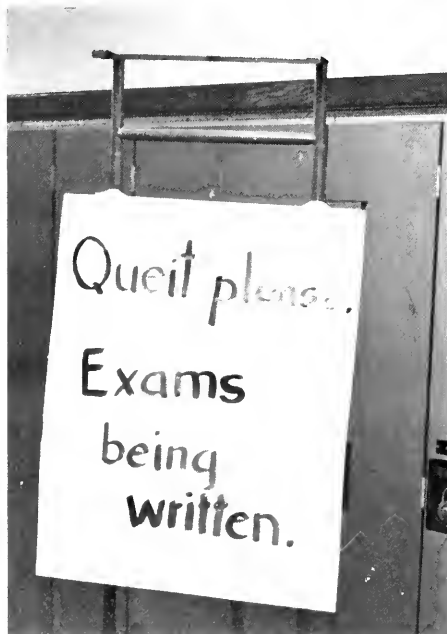 Queit please..
Exams
being
written.